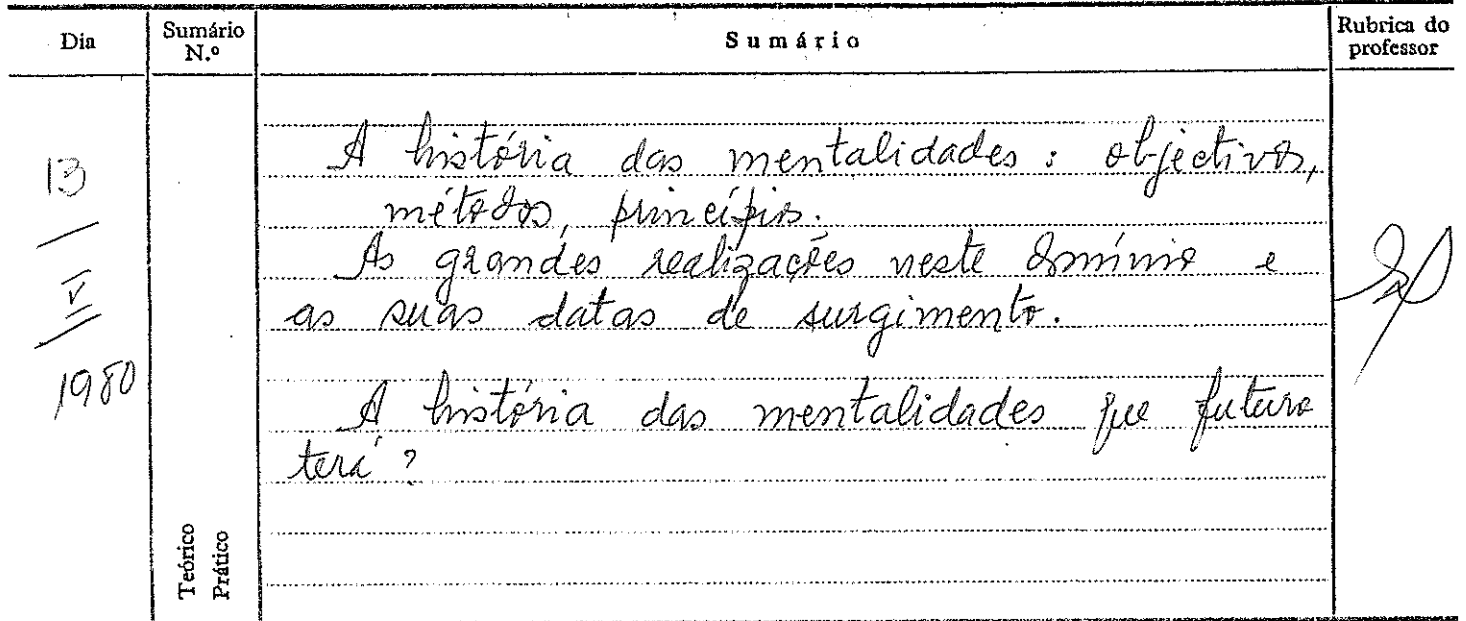 Dia
Sumário N.º
Sumário
Rubrica do professor
13
V
1980
A história das mentalidades: objectivos,
métodos, princípios.
As grandes realizações neste domínio e
as suas datas de surgimento.
A história das mentalidades que futuro
terá?
Teórico
Prático